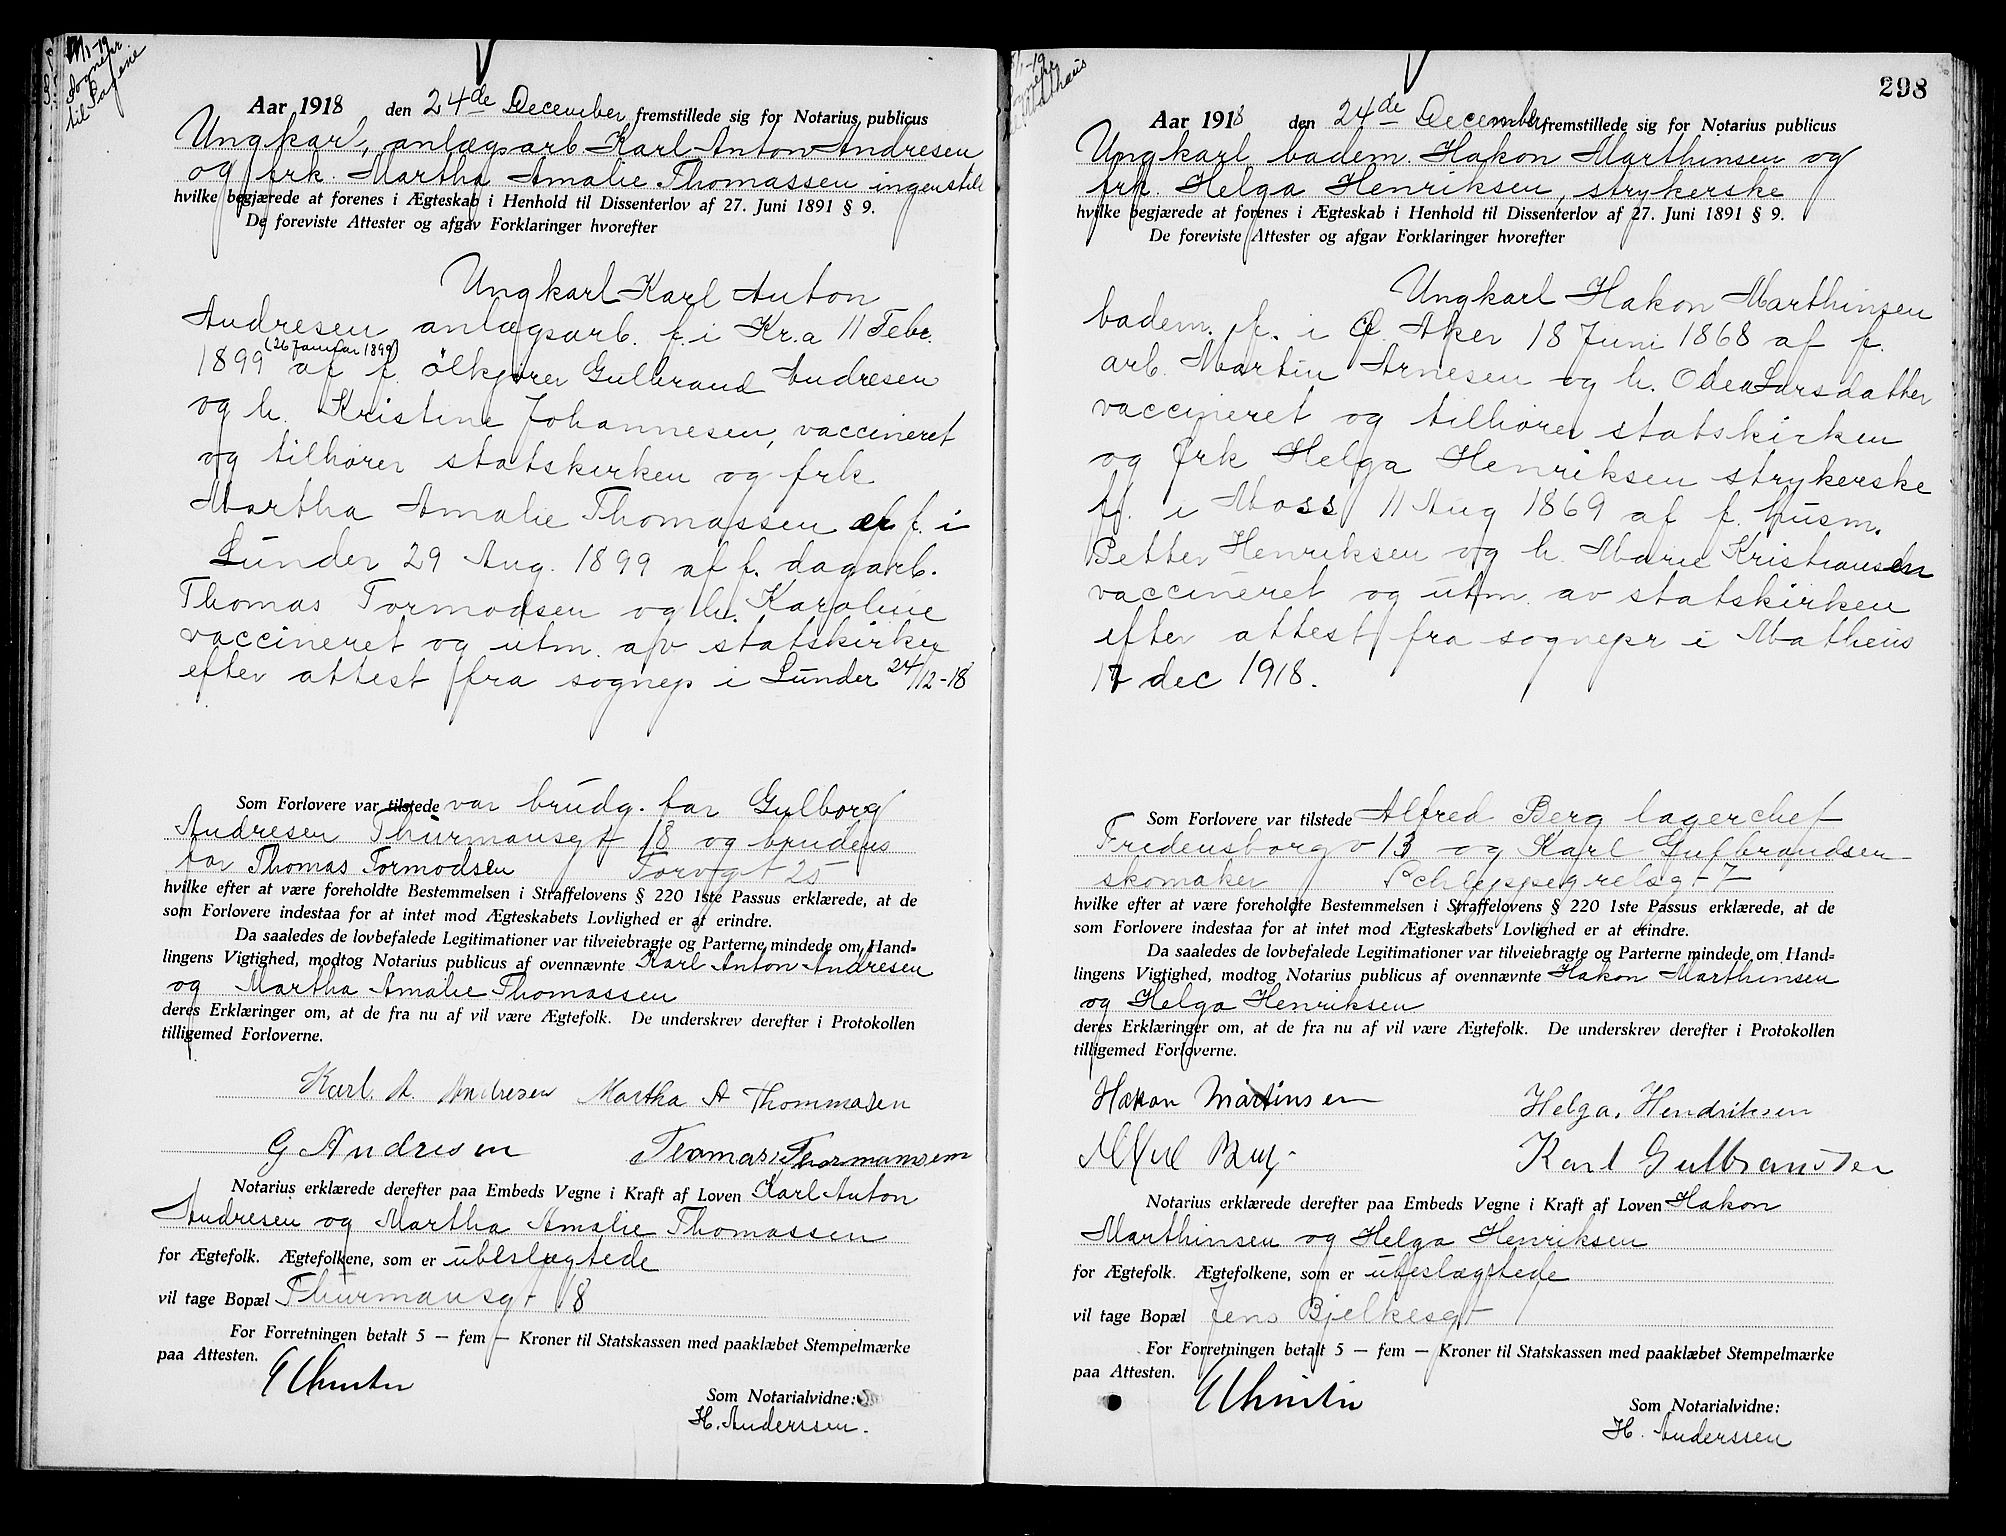 11/1-19
Sognepr.
til Sagene
Aar 1918 den 24de December fremstillede sig for Notarius publicus
Ungkarl, anlægsarb Karl Anton Andresen
og frk. Martha Amalie Thomassen ingen still
hvilke begjærede at forenes i Ægteskab i Henhold til Dissenterlov af 27. Juni 1891 § 9.
De foreviste Attester og afgav Forklaringer hvorefter
Ungkarl Karl Anton
Andresen anlægsarb. f. i Kr.a 11 Febr.
(26 januar 1899)
1899 af f. ölkjører Gulbrand Andresen
og h. Kristine Johannesen, vaccineret
og tilhører statskirken og frk
Martha Amalie Thomassen er f. i
Lunder 29 Aug. 1899 af f. dagarb.
Thomas Tormodsen og h. Karoline
vaccineret og utm. av statskirken
efter attest fra sognep i Lunder 24/12-18
Som Forlovere var tilstede var brudg. far Gulborg
Andresen Thurmansgt 18 og brudens
far Thomas Tormodsen Torvgt 25
hvilke efter at være foreholdte Bestemmelsen i Straffelovens § 220 1ste Passus erklærede, at de
som Forlovere indestaa for at intet mod Ægteskabets Lovlighed er at erindre.
Da saaledes de lovbefalede Legitimationer var tilveiebragte og Parterne mindede om Hand-
lingens Vigtighed, modtog Notarius publicus af ovennævnte Karl Anton Andresen
og Martha Amalie Thomassen
deres Erklæringer om, at de fra nu af vil være Ægtefolk. De underskrev derefter i Protokollen
tilligemed Forloverne.
Karl. A. Andresen Martha A Thommasen
G Andresen Thomas Thormomsem
Notarius erklærede derefter paa Embeds Vegne i Kraft af Loven Karl Anton
Andresen og Martha Amalie Thomassen
for Ægtefolk. Ægtefolkene, som er ubeslægtede
vil tage Bopæl Thurmansgt 18
For Forretningen betalt 5 — fem — Kroner til Statskassen med paaklæbet Stempelmærke
paa Attesten.
Som Notarialvidne:
H. Anderssen.
298
Aar 1918 den 24de December fremstillede sig for Notarius publicus
Ungkarl badem. Hakon Marthinsen og
frk. Helga Henriksen, strykerske
hvilke begjærede at forenes i Ægteskab i Henhold til Dissenterlov af 27. Juni 1891 § 9.
De foreviste Attester og afgav Forklaringer hvorefter
Ungkarl Hakon Marthinsen
badem. f. i Ø. Aker 18 Juni 1868 af f.
arb. Martin Arnesen og h. Odea Larsdatter
vaccineret og tilhører statskirken
og frk Helga Henriksen strykerske
f. i Moss 11 Aug 1869 af f. husm.
Petter Henriksen og h. Marie Kristiansen
vaccineret og utm. av statskirken
efter attest fra sognepr i Matheus
17 dec 1918.
Som Forlovere var tilstede Alfred Berg lagerchef
Fredensborgv 13 og Karl Gulbrandsen
skomaker Schleppegrelsgt 7
hvilke efter at være foreholdte Bestemmelsen i Straffelovens § 220 1ste Passus erklærede, at de
som Forlovere indestaa for at intet mod Ægteskabets Lovlighed er at erindre.
Da saaledes de lovbefalede Legitimationer var tilveiebragte og Parterne mindede om Hand-
lingens Vigtighed, modtog Notarius publicus af ovennævnte Hakon Marthinsen
og Helga Henriksen
deres Erklæringer om, at de fra nu af vil være Ægtefolk. De underskrev derefter i Protokollen
tilligemed Forloverne.
Hakon Martinsen Helga. Hendriksen
Alfred Berg Karl Gulbransen
Notarius erklærede derefter paa Embeds Vegne i Kraft af Loven Hakon
Marthinsen og Helga Henriksen
for Ægtefolk. Ægtefolkene, som er ubeslægtede
vil tage Bopæl Jens Bjelkesgt
For Forretningen betalt 5 — fem — Kroner til Statskassen med paaklæbet Stempelmærke
paa Attesten.
Som Notarialvidne:
H. Anderssen